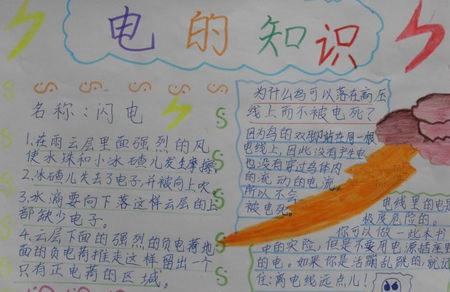 电的知识
名称:闪电
1.在雨云层里面强烈的风
使水珠和小冰碴儿发生摩擦
2.冰碴儿失去了电子,并被向上吹
3.水滴要向下落这样云层的上
都缺少电子。
4.云层下面的强烈的负电荷把
面的负电荷推走这样留出一个
只有正电荷的区域。
为什么鸟可以落在高压
线上而不被电死?
因为鸟的双脚站在同一根
电线上,因此没有产生电
也没有穿过鸟体内
的流动的电流
所以不会
被电死。
电线里的电是
极度危险的。
你可以做一些本书
中的实验,但是不要用电源插座
的电。如果你是活蹦乱跳的,就记
住:离电线远点儿!